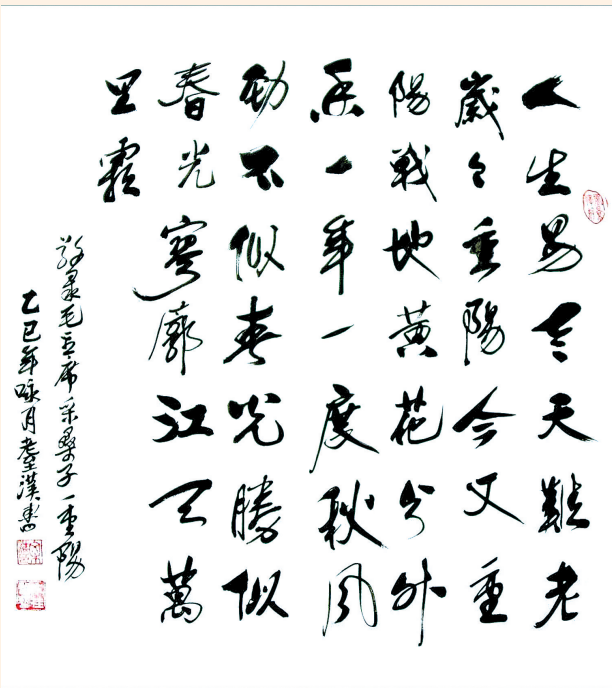 人生易老天難老
歲々重陽今又重
陽戰地黄花分外
香一年一度秋風
勁不似春光勝似
春光寥廓江天萬
里霜
敬录毛主席采桑子一重陽
乙巳年咏月漢書